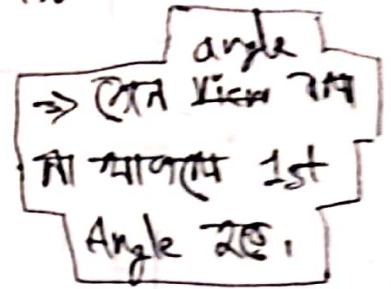 angle
⇒ কোন View নাম
না থাকলে 1st
Angle হবে।